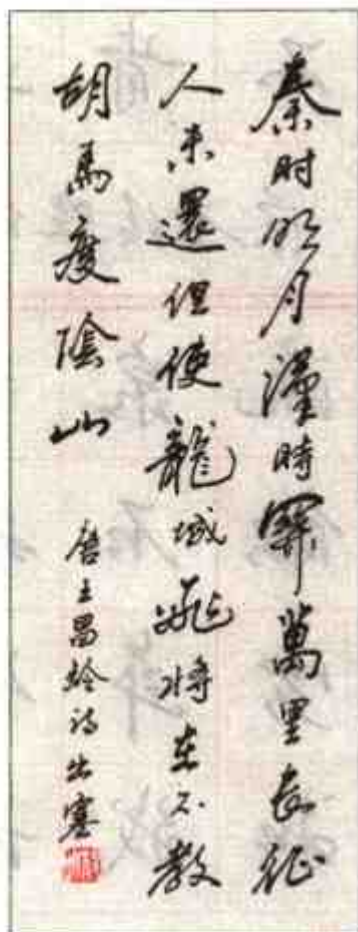 秦时明月漢時關萬里長征
人未還但使龍城飛將在不教
胡馬度陰山
唐王昌龄诗出塞